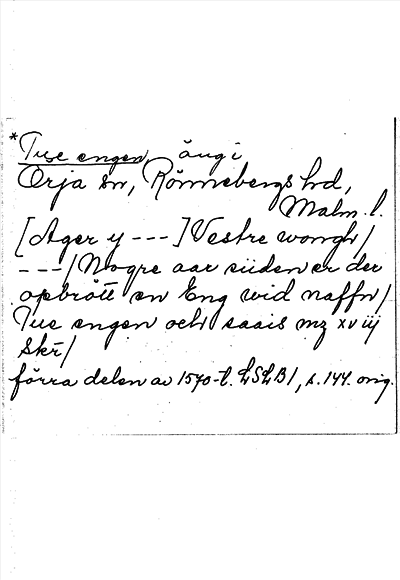 *Tuse engen, äng i
Örja sn, Rönnebergs hd,
Malm. l.
[Ager y ---] Vestre wongh/
---/ Nogre aar siiden er der
opbrött en Eng wid naffn/
Tue engen och saais mz xviij
Skr/
förra delen av 1570-t. LSLB1, s. 144. orig.